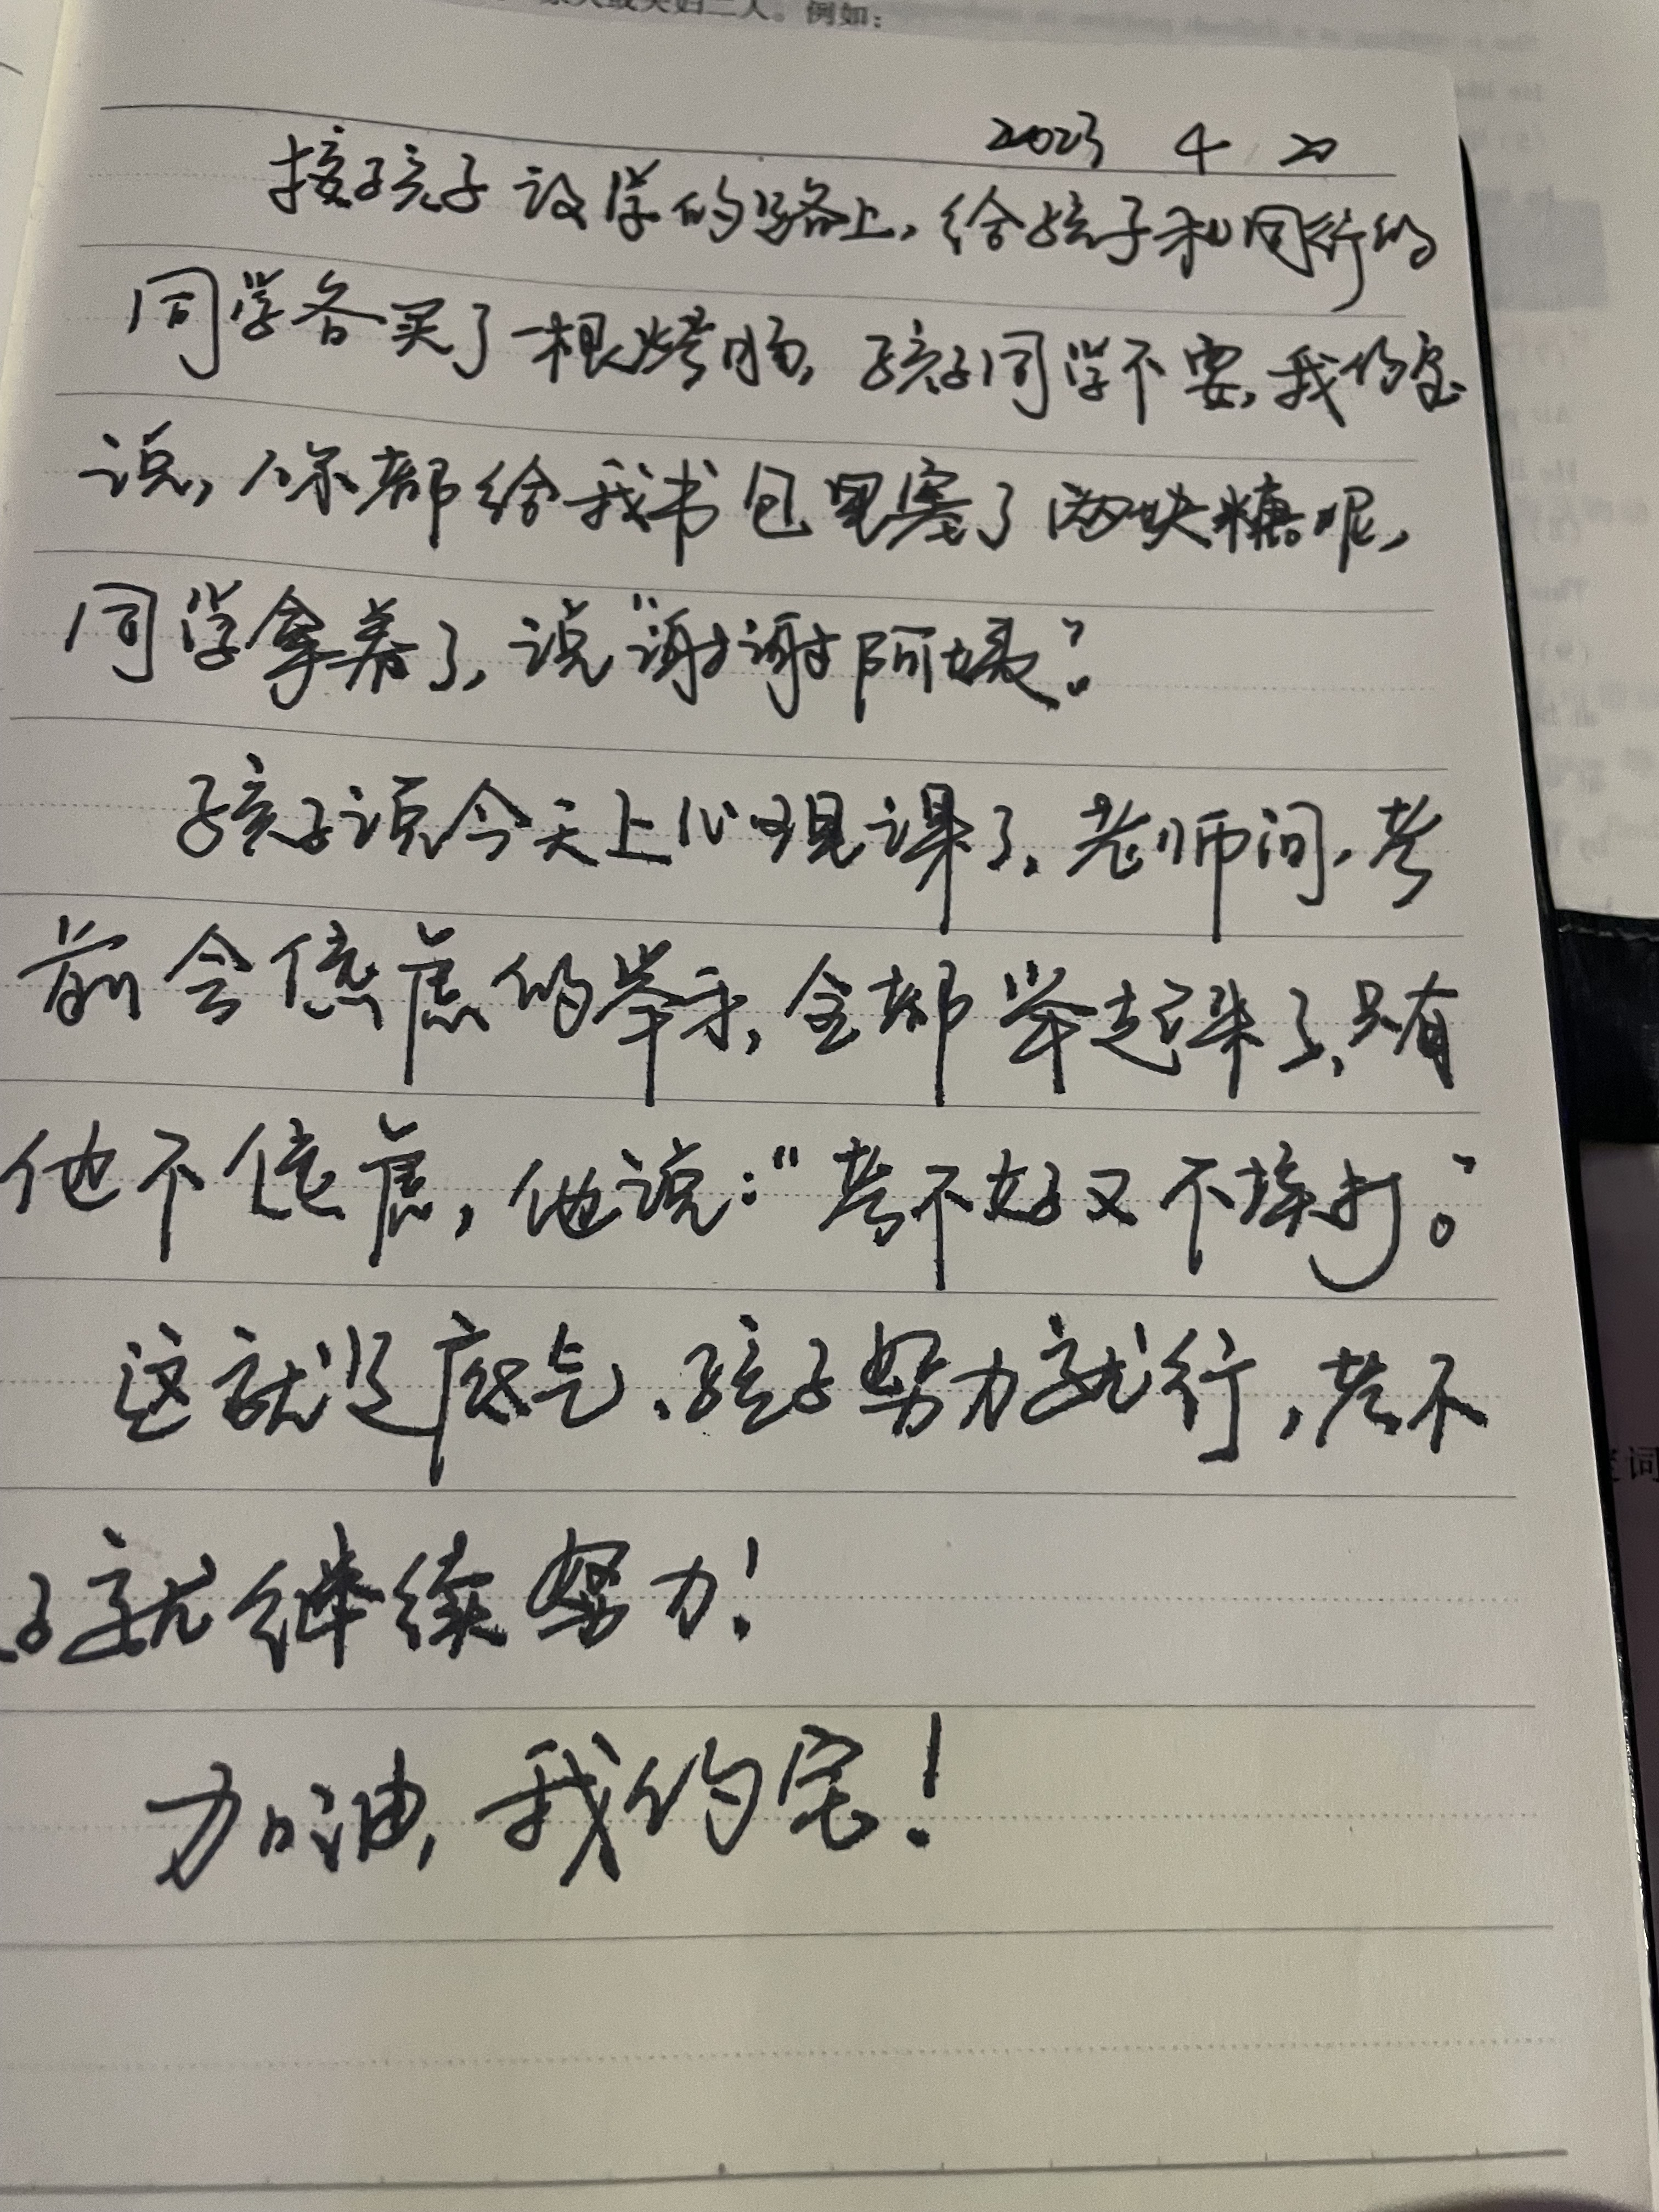 家人或夫妇二人。例如：
2023 4 20
接孩子放学的路上，给孩子和同行的
同学各买了一根烤肠，孩子同学不要，我的宝
说，你都给我书包里塞了两块糖呢，
同学拿着了，说“谢谢阿姨”。
孩子说今天上心理课了，老师问，考
前会焦虑的举手，全部举起来了，只有
他不焦虑，他说：“考不好又不挨打。”
这就是底气，孩子努力就行，考不
好就继续努力！
加油，我的宝！
词